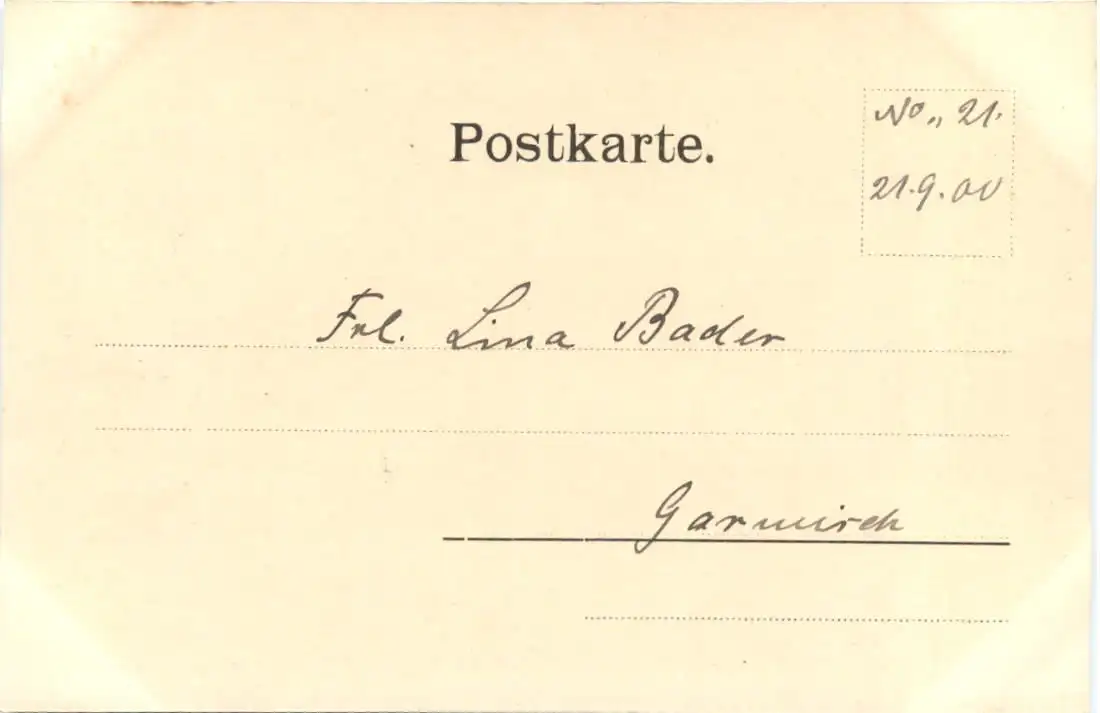 Postkarte.
No„ 21.
21.9.00
Frl. Lina Bader
Garmisch